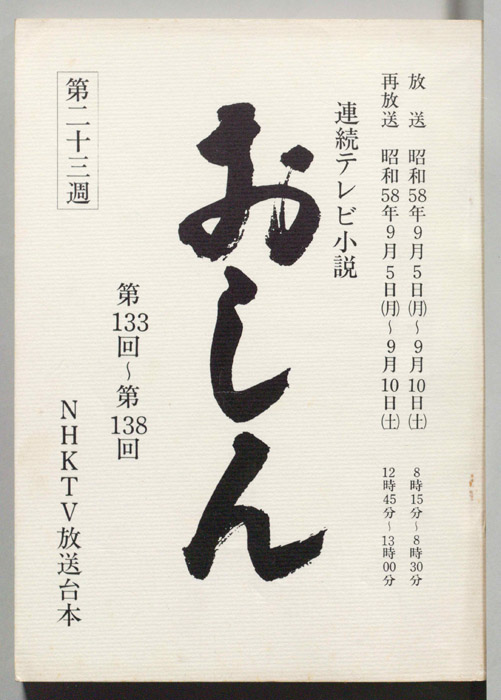 放　送　昭和58年9月5日(月)～9月10日(土)　8時15分～8時30分
再放送　昭和58年9月5日(月)～9月10日(土)　12時45分～13時00分
連続テレビ小説
おしん
第133回～第138回
第二十三週
NHKTV放送台本